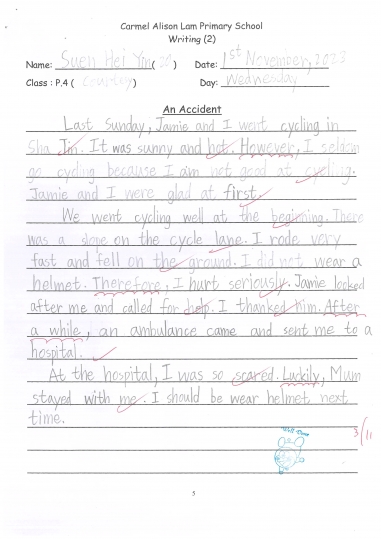 Carmel Alison Lam Primary School
Writing (2)
Name: Suen Hei Yin (20) Date: 1st November, 2023
Class : P.4 ( Courtesy ) Day: Wednesday
An Accident
Last Sunday, Jamie and I went cycling in
Sha Tin. It was sunny and hot. However, I seldom
go cycling because I am not good at cycling.
Jamie and I were glad at first.
We went cycling well at the beginning. There
was a slope on the cycle lane. I rode very
fast and fell on the ground. I did not wear a
helmet. Therefore, I hurt seriously. Jamie looked
after me and called for help. I thanked him. After
a while, an ambulance came and sent me to a
hospital.
At the hospital, I was so scared. Luckily, Mum
stayed with me. I should be wear helmet next
time.
Well Done
3/11
5